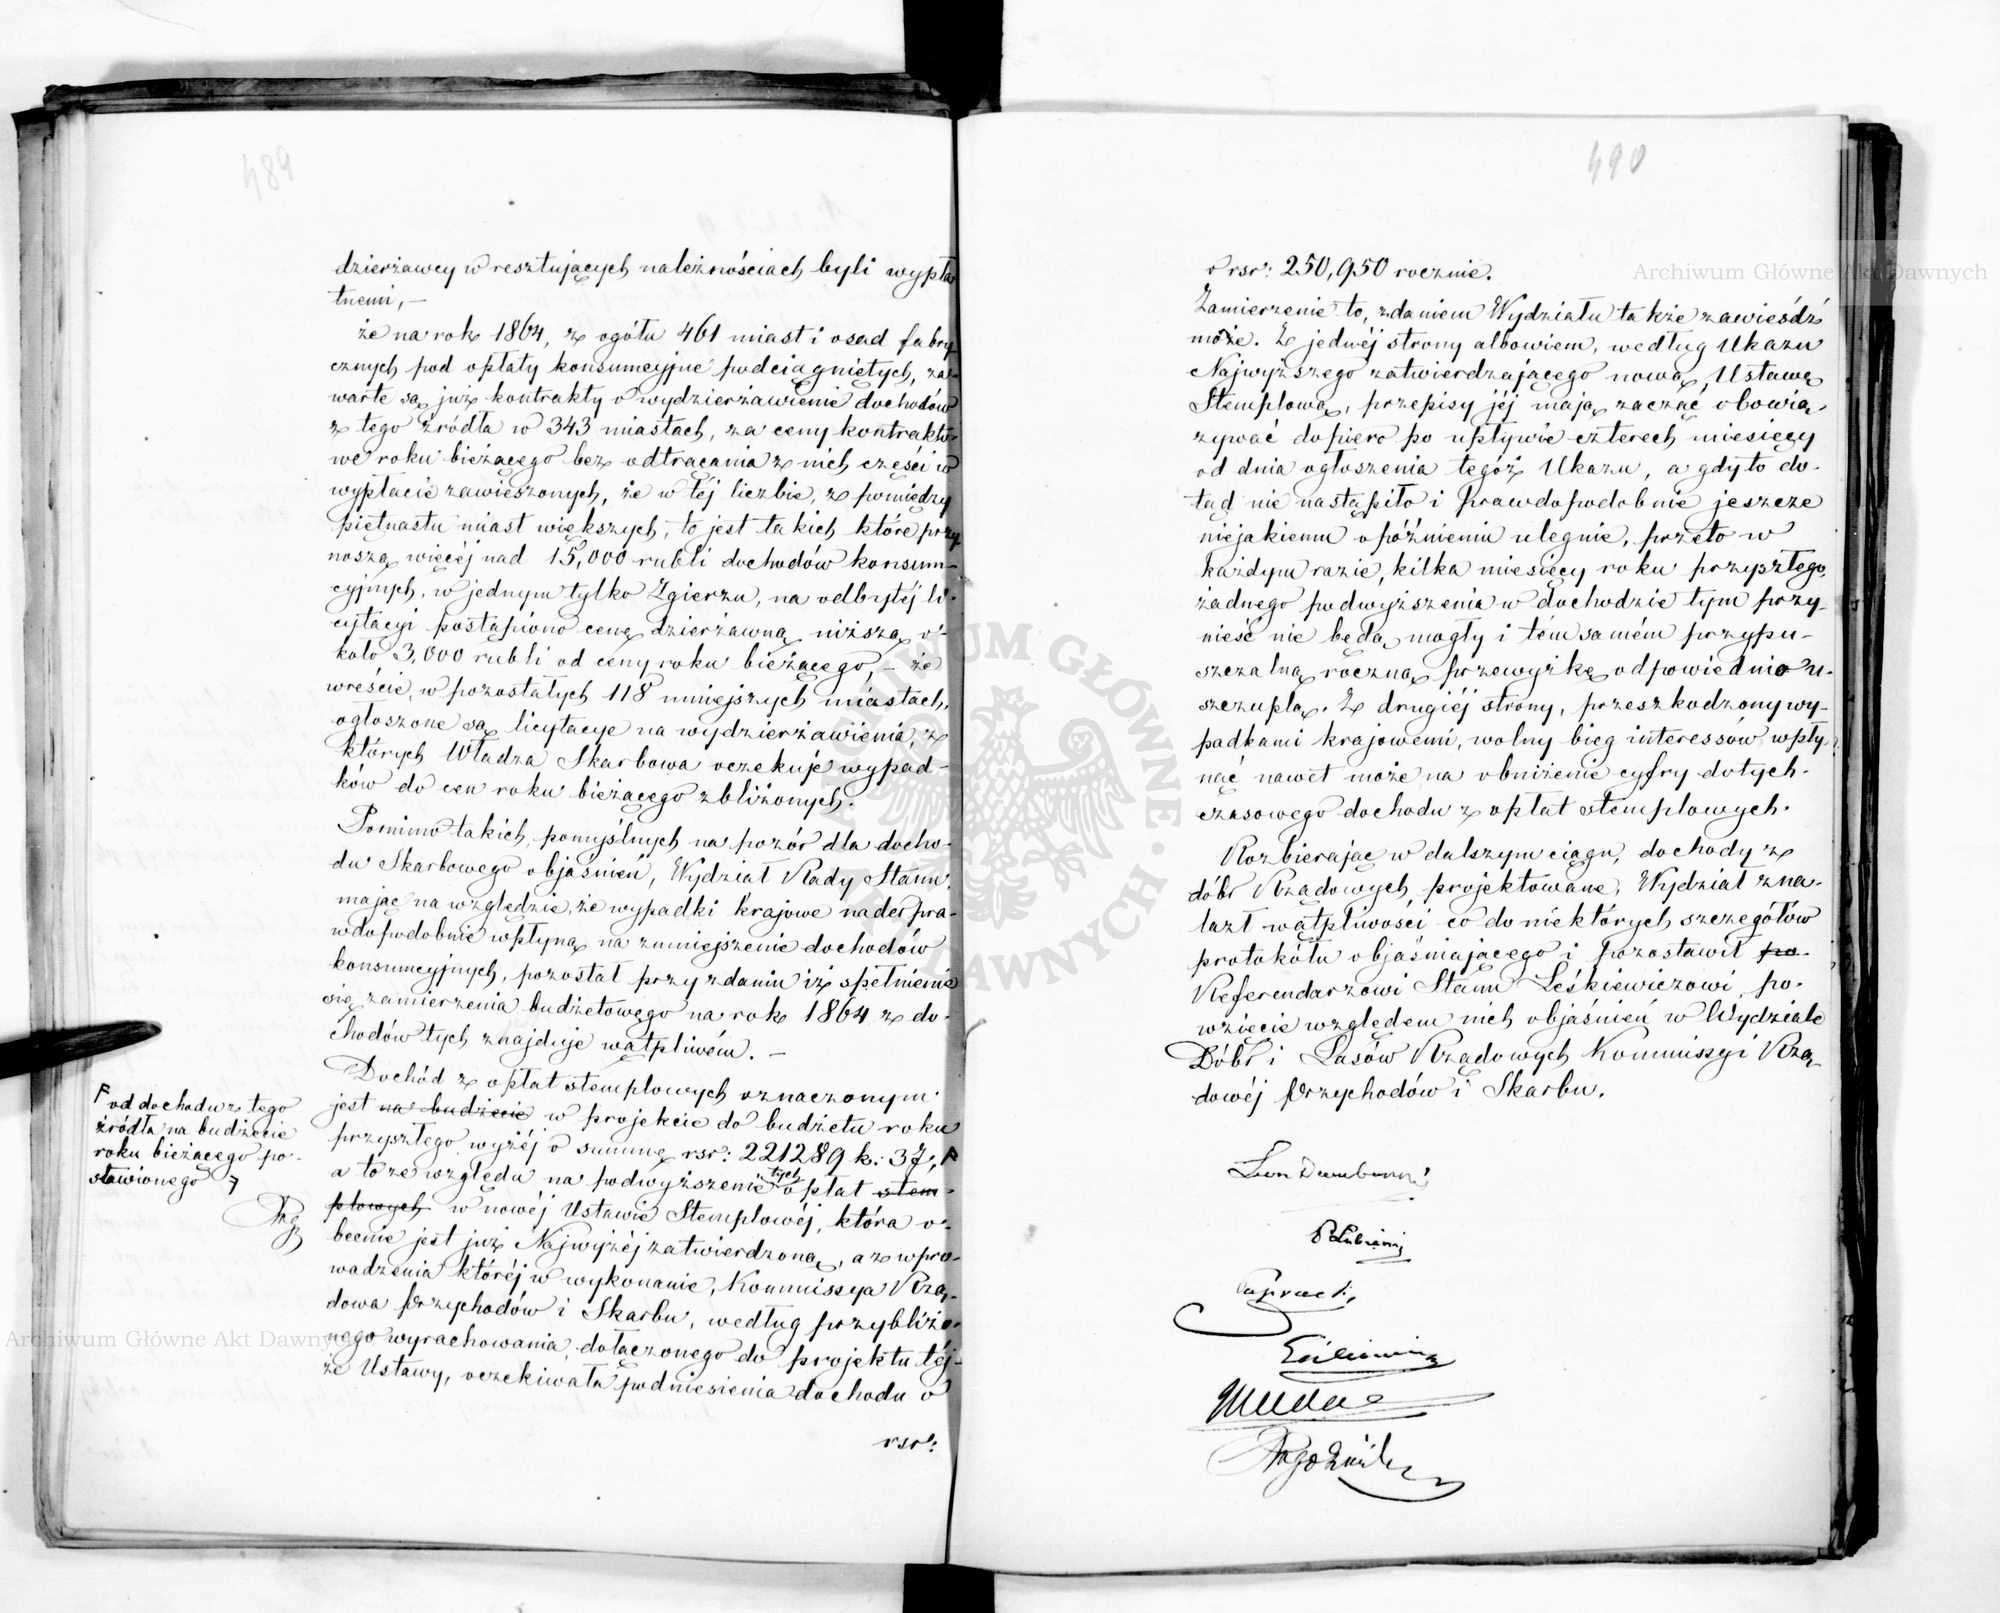 489
dzierżawcy w resztujących należnościach byli wypła
tnemi, —
że na rok 1864, z ogółu 461 miast i osad fabry
cznych pod opłaty konsumcyjne podciągniętych, za-
warte są już kontrakty o wydzierżawienie dochodów
z tego źródła w 343 miastach, za ceny kontrakto-
we roku bieżącego bez odtrącania z nich części w
wypłacie zawieszonych, że w téj liczbie, z pomiędzy
piętnastu miast większych, to jest takich które przy
noszą więcéj nad 15,000 rubli dochodów konsum-
cyjnych, w jednym tylko Zgierzu, na odbytéj li-
cytacyi postąpiono cenę dzierżawną niższą o-
koło 3,000 rubli od ceny roku bieżącego, – że
wreście, w pozostałych 118 mniejszych miastach,
ogłoszone są licytacye na wydzierżawienia, z
których Władza Skarbowa oczekuje wypad-
ków do cen roku bieżącego zbliżonych.
Pomimo takich, pomyślnych na pozór dla docho-
du Skarbowego objaśnień, Wydział Rady Stanu,
mając na względzie, że wypadki krajowe nader pra-
wdopodobnie wpłyną na zmniejszenie dochodów
konsumcyjnych, pozostał przy zdaniu iż spełnienie
się zamierzenia budżetowego na rok 1864 z do-
chodów tych znajduje wątpliwém. —
Dochód z opłat stemplowych oznaczonym
jest na budżecie w projekcie do budżetu roku
przyszłego wyżéj o summę rsr: 221289 k: 37, F
F od dochodu z tego
źródła na budżecie
roku bieżącego po-
stawionego
a to ze względu na podwyższenie tych opłat stem-
plowych w nowéj Ustawie Stemplowéj, która o-
becnie jest już Najwyżéj zatwierdzoną, a z wpro-
wadzenia któréj w wykonanie, Kommissya Rzą-
dowa Przychodów i Skarbu, według przybliżo-
nego wyrachowania, dołączonego do projektu téj-
że Ustawy, oczekiwała podniesienia dochodu o
rsr:
490
o rsr: 250,950 rocznie.
Zamierzenie to, zdaniem Wydziału także zawieśdź
może. Z jednéj strony albowiem, według Ukazu
Najwyższego zatwierdzającego nową Ustawę
Stemplową, przepisy jéj mają zacząć obowią-
zywać dopiero po upływie czterech miesięcy
od dnia ogłoszenia tegóż Ukazu, a gdy to do-
tąd nie nastąpiło i prawdopodobnie jeszcze
niejakiemu opóźnieniu ulegnie, przeto w
każdym razie, kilka miesięcy roku przyszłego,
żadnego podwyższenia w dochodzie tym przy-
nieść nie będą mogły i tém samém przypu-
szczalną roczną przewyżkę odpowiednio u-
szczuplą. Z drugiéj strony, przeszkodzony wy-
padkami krajowemi, wolny bieg interessów wpły-
nąć nawet może na obniżenie cyfry dotych-
czasowego dochodu z opłat stemplowych.
Rozbierając w dalszym ciągu, dochody z
dóbr Rządowych projektowane, Wydział zna-
lazł wątpliwości co do niektórych szczegółów
protokółu objaśniającego i pozostawił po-
Referendarzowi Stanu Leśkiewiczowi, po-
wzięcie względem nich objaśnień w Wydziale
Dóbr i Lasów Rządowych Kommissyi Rzą-
dowéj Przychodów i Skarbu.
Archiwum Główne Akt Dawnych
Archiwum Główne Akt Dawnych
ARCHIWUM GŁÓWNE AKT DAWNYCH